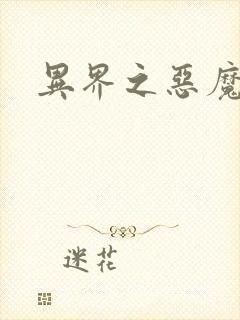 異界之惡魔
迷花